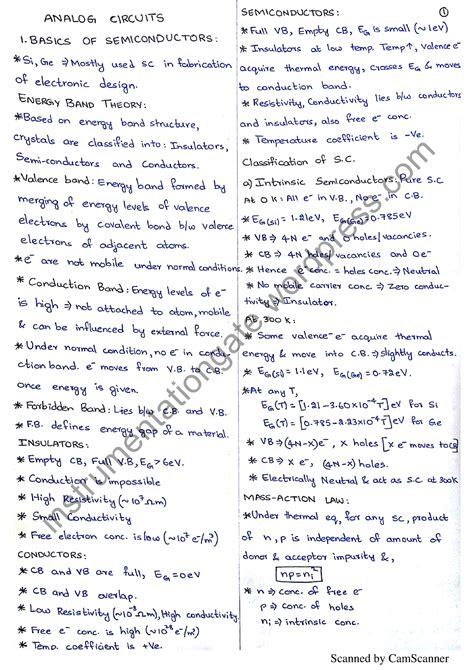 ANALOG CIRCUITS
1. BASICS OF SEMICONDUCTORS:
* Si, Ge ⇒ Mostly used sc in fabrication
of electronic design.
ENERGY BAND THEORY:
* Based on energy band structure,
crystals are classified into: Insulators,
Semi-conductors and Conductors.
* Valence band: Energy band formed by
merging of energy levels of valence
electrons by covalent band b/w valence
electrons of adjacent atoms.
* e⁻ are not mobile under normal conditions.
* Conduction Band: Energy levels of e⁻
is high ⇒ not attached to atom, mobile
& can be influenced by external force.
* Under normal condition, no e⁻ in condu-
ction band. e⁻ moves from V.B. to C.B.
once energy is given.
* Forbidden Band: Lies b/w C.B and V.B.
* F.B. defines energy gap of a material.
INSULATORS:
* Empty CB, Full V.B, EG > 6eV.
* Conduction is impossible
* High Resistivity (~10⁷ Ωm)
* Small Conductivity
* Free electron conc. is low (~10⁷ e⁻/m³)
CONDUCTORS:
* CB and VB are full, EG = 0eV
* CB and VB overlap.
* Low Resistivity (~10⁻⁸ Ωm), High conductivity.
* Free e⁻ conc. is high (~10²⁸ e⁻/m³)
* Temp. coefficient is +Ve.
SEMICONDUCTORS:
1
* Full VB, Empty CB, EG is small (~1eV)
* Insulators at low temp. Temp↑, valence e⁻
acquire thermal energy, crosses EG & moves
to conduction band.
* Resistivity, Conductivity lies b/w conductors
and insulators, also free e⁻ conc.
* Temperature coefficient is -Ve.
Classification of S.C.
a) Intrinsic Semiconductors: Pure S.C
At 0K: All e⁻ in V.B., No e⁻ in C.B.
* EG(Si) = 1.21eV, EG(Ge) = 0.785eV
* VB ⇒ 4N e⁻ and 0 holes/vacancies.
* CB ⇒ 4N holes/vacancies and 0e⁻
* Hence e⁻ conc. = holes conc. ⇒ Neutral
* No mobile carrier conc. ⇒ Zero conduc-
tivity ⇒ Insulator.
At 300K:
* Some valence e⁻ acquire thermal
energy & move into C.B. ⇒ slightly conducts.
* EG(Si) = 1.1eV, EG(Ge) = 0.72eV.
* At any T,
EG(T) = [1.21 - 3.60×10⁻⁴T] eV for Si
EG(T) = [0.785 - 2.23×10⁻⁴T] eV for Ge
* VB ⇒ (4N-X)e⁻, X holes [X e⁻ moves to CB]
* CB ⇒ X e⁻, (4N-X) holes.
* Electrically Neutral & act as S.C. at 300K
MASS-ACTION LAW:
* Under thermal eq, for any sc, product
of n, p is independent of amount of
donor & acceptor impurity &,
np = ni²
* n ⇒ conc. of free e⁻
p ⇒ conc. of holes
ni ⇒ intrinsic conc.
instrumentationgate.wordpress.com
Scanned by CamScanner